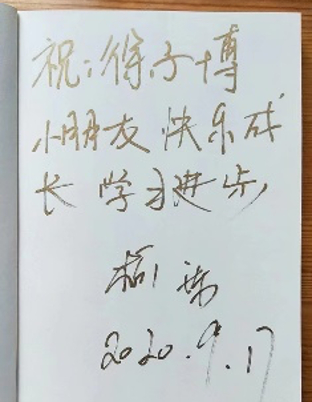 祝:徐子博
小朋友快乐成
长 学习进步
2020.9.17